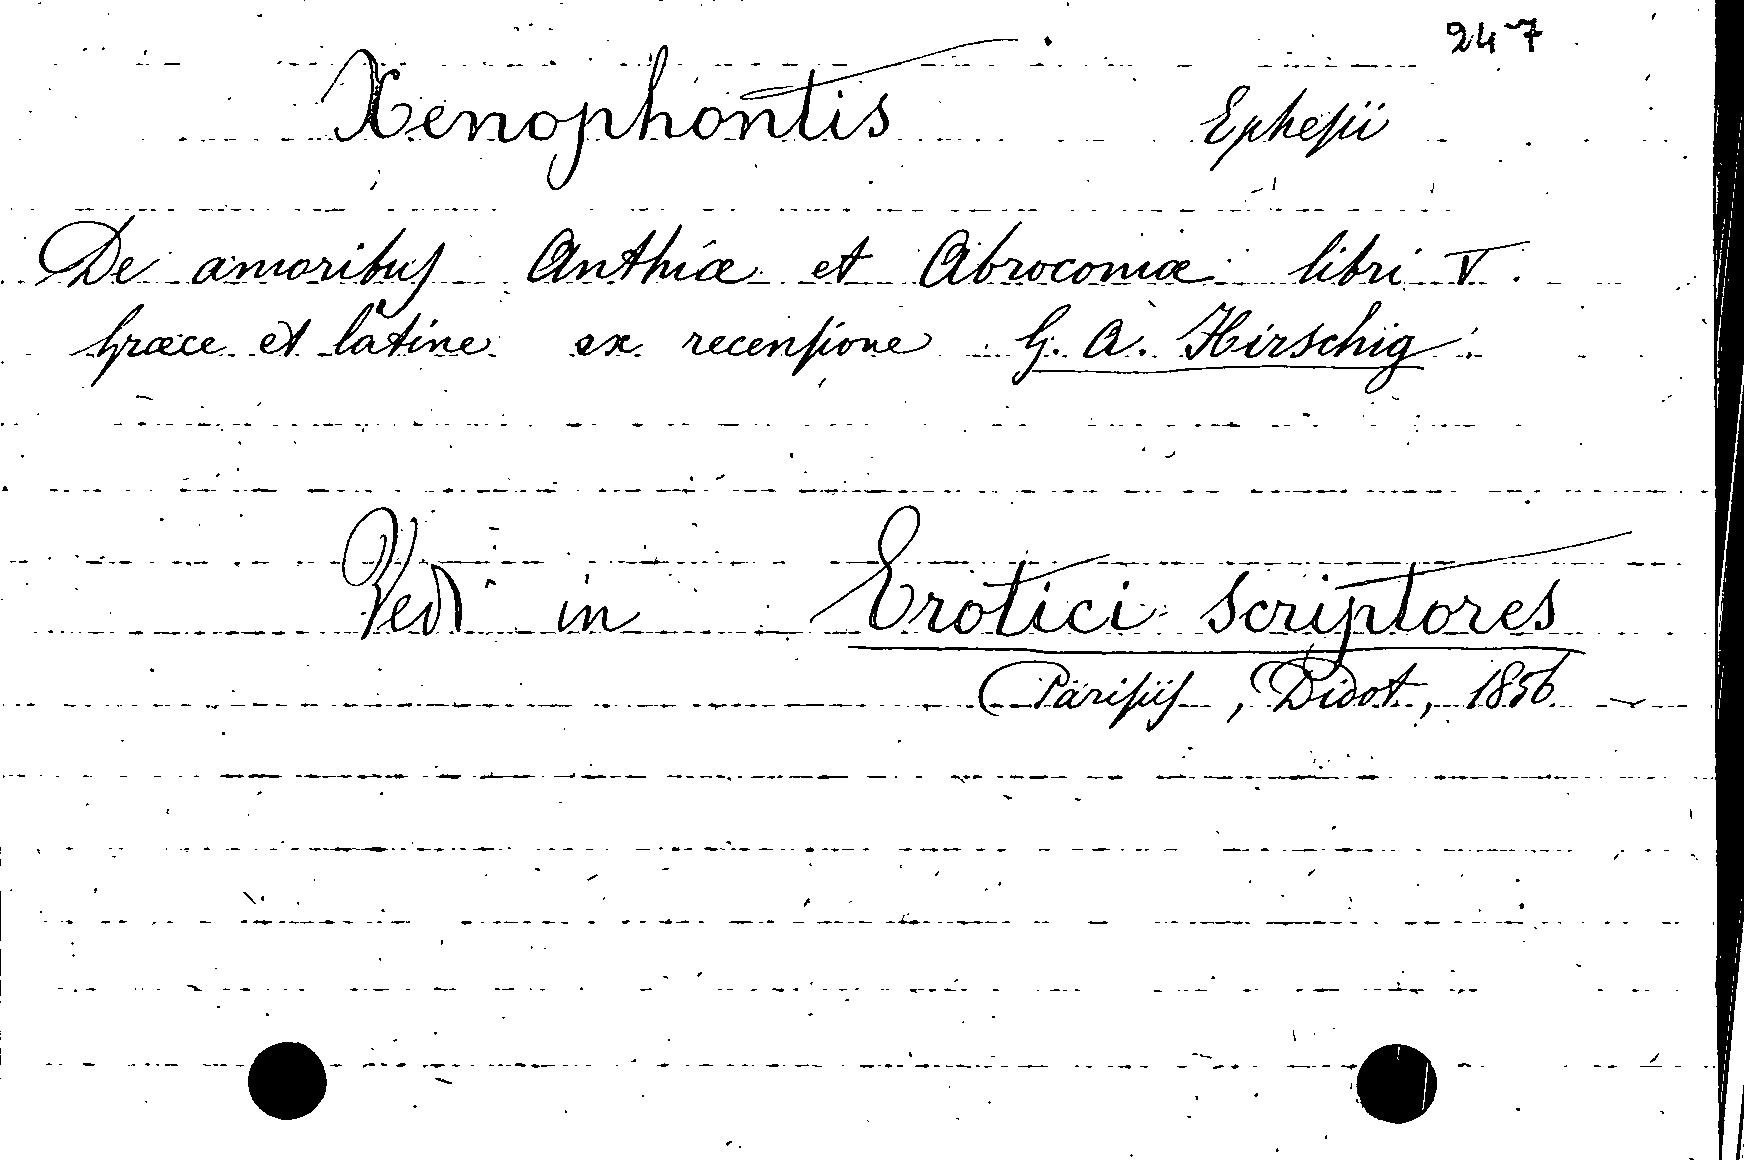 247
Xenophontis Ephesii
De amoribus Anthiæ et Abrocomiæ libri V.
græce et latine ex recensione G. A. Hirschig.
Vedi in Erotici scriptores
Parisiis, Didot, 1856